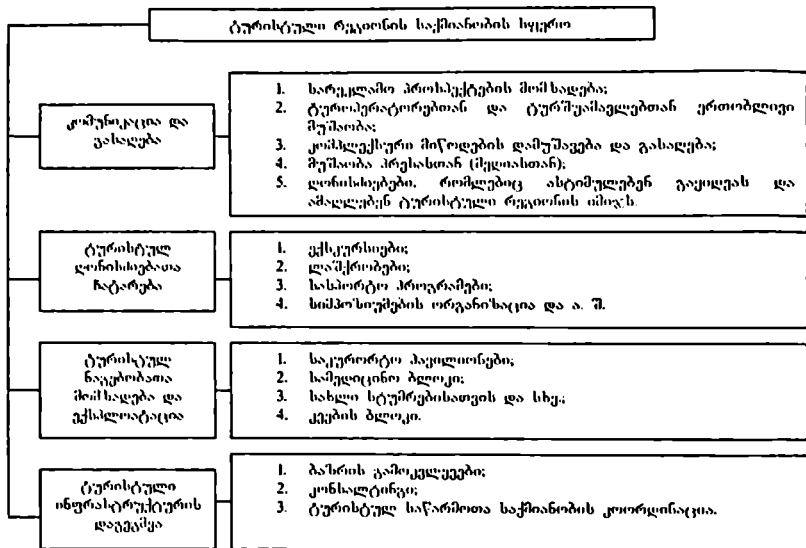 ტურისტული რეგიონის საქმიანობის სფერო
კომუნიკაცია და
გასაღება
1. სარეკლამო პროსპექტების მომზადება;
2. ტუროპერატორებთან და ტურშუამავლებთან ერთობლივი
მუშაობა;
3. კომპლექსური მიწოდების დამუშავება და გასაღება;
4. მუშაობა პრესასთან (მედიასთან);
5. ღონისძიებები, რომლებიც ასტიმულებენ გაყიდვას და
ამაღლებენ ტურისტული რეგიონის იმიჯს.
ტურისტულ
ღონისძიებათა
ჩატარება
1. ექსკურსიები;
2. ლაშქრობები;
3. სასპორტო პროგრამები;
4. სიმპოზიუმების ორგანიზაცია და ა. შ.
ტურისტულ
ნაგებობათა
მომზადება და
ექსპლოატაცია
1. საკურორტო პავილიონები;
2. სამედიცინო ბლოკი;
3. სახლი სტუმრებისათვის და სხვ.;
4. კვების ბლოკი.
ტურისტული
ინფრასტრუქტურის
დაგეგმვა
1. ბაზრის გამოკვლევები;
2. კონსალტინგი;
3. ტურისტულ საწარმოთა საქმიანობის კოორდინაცია.